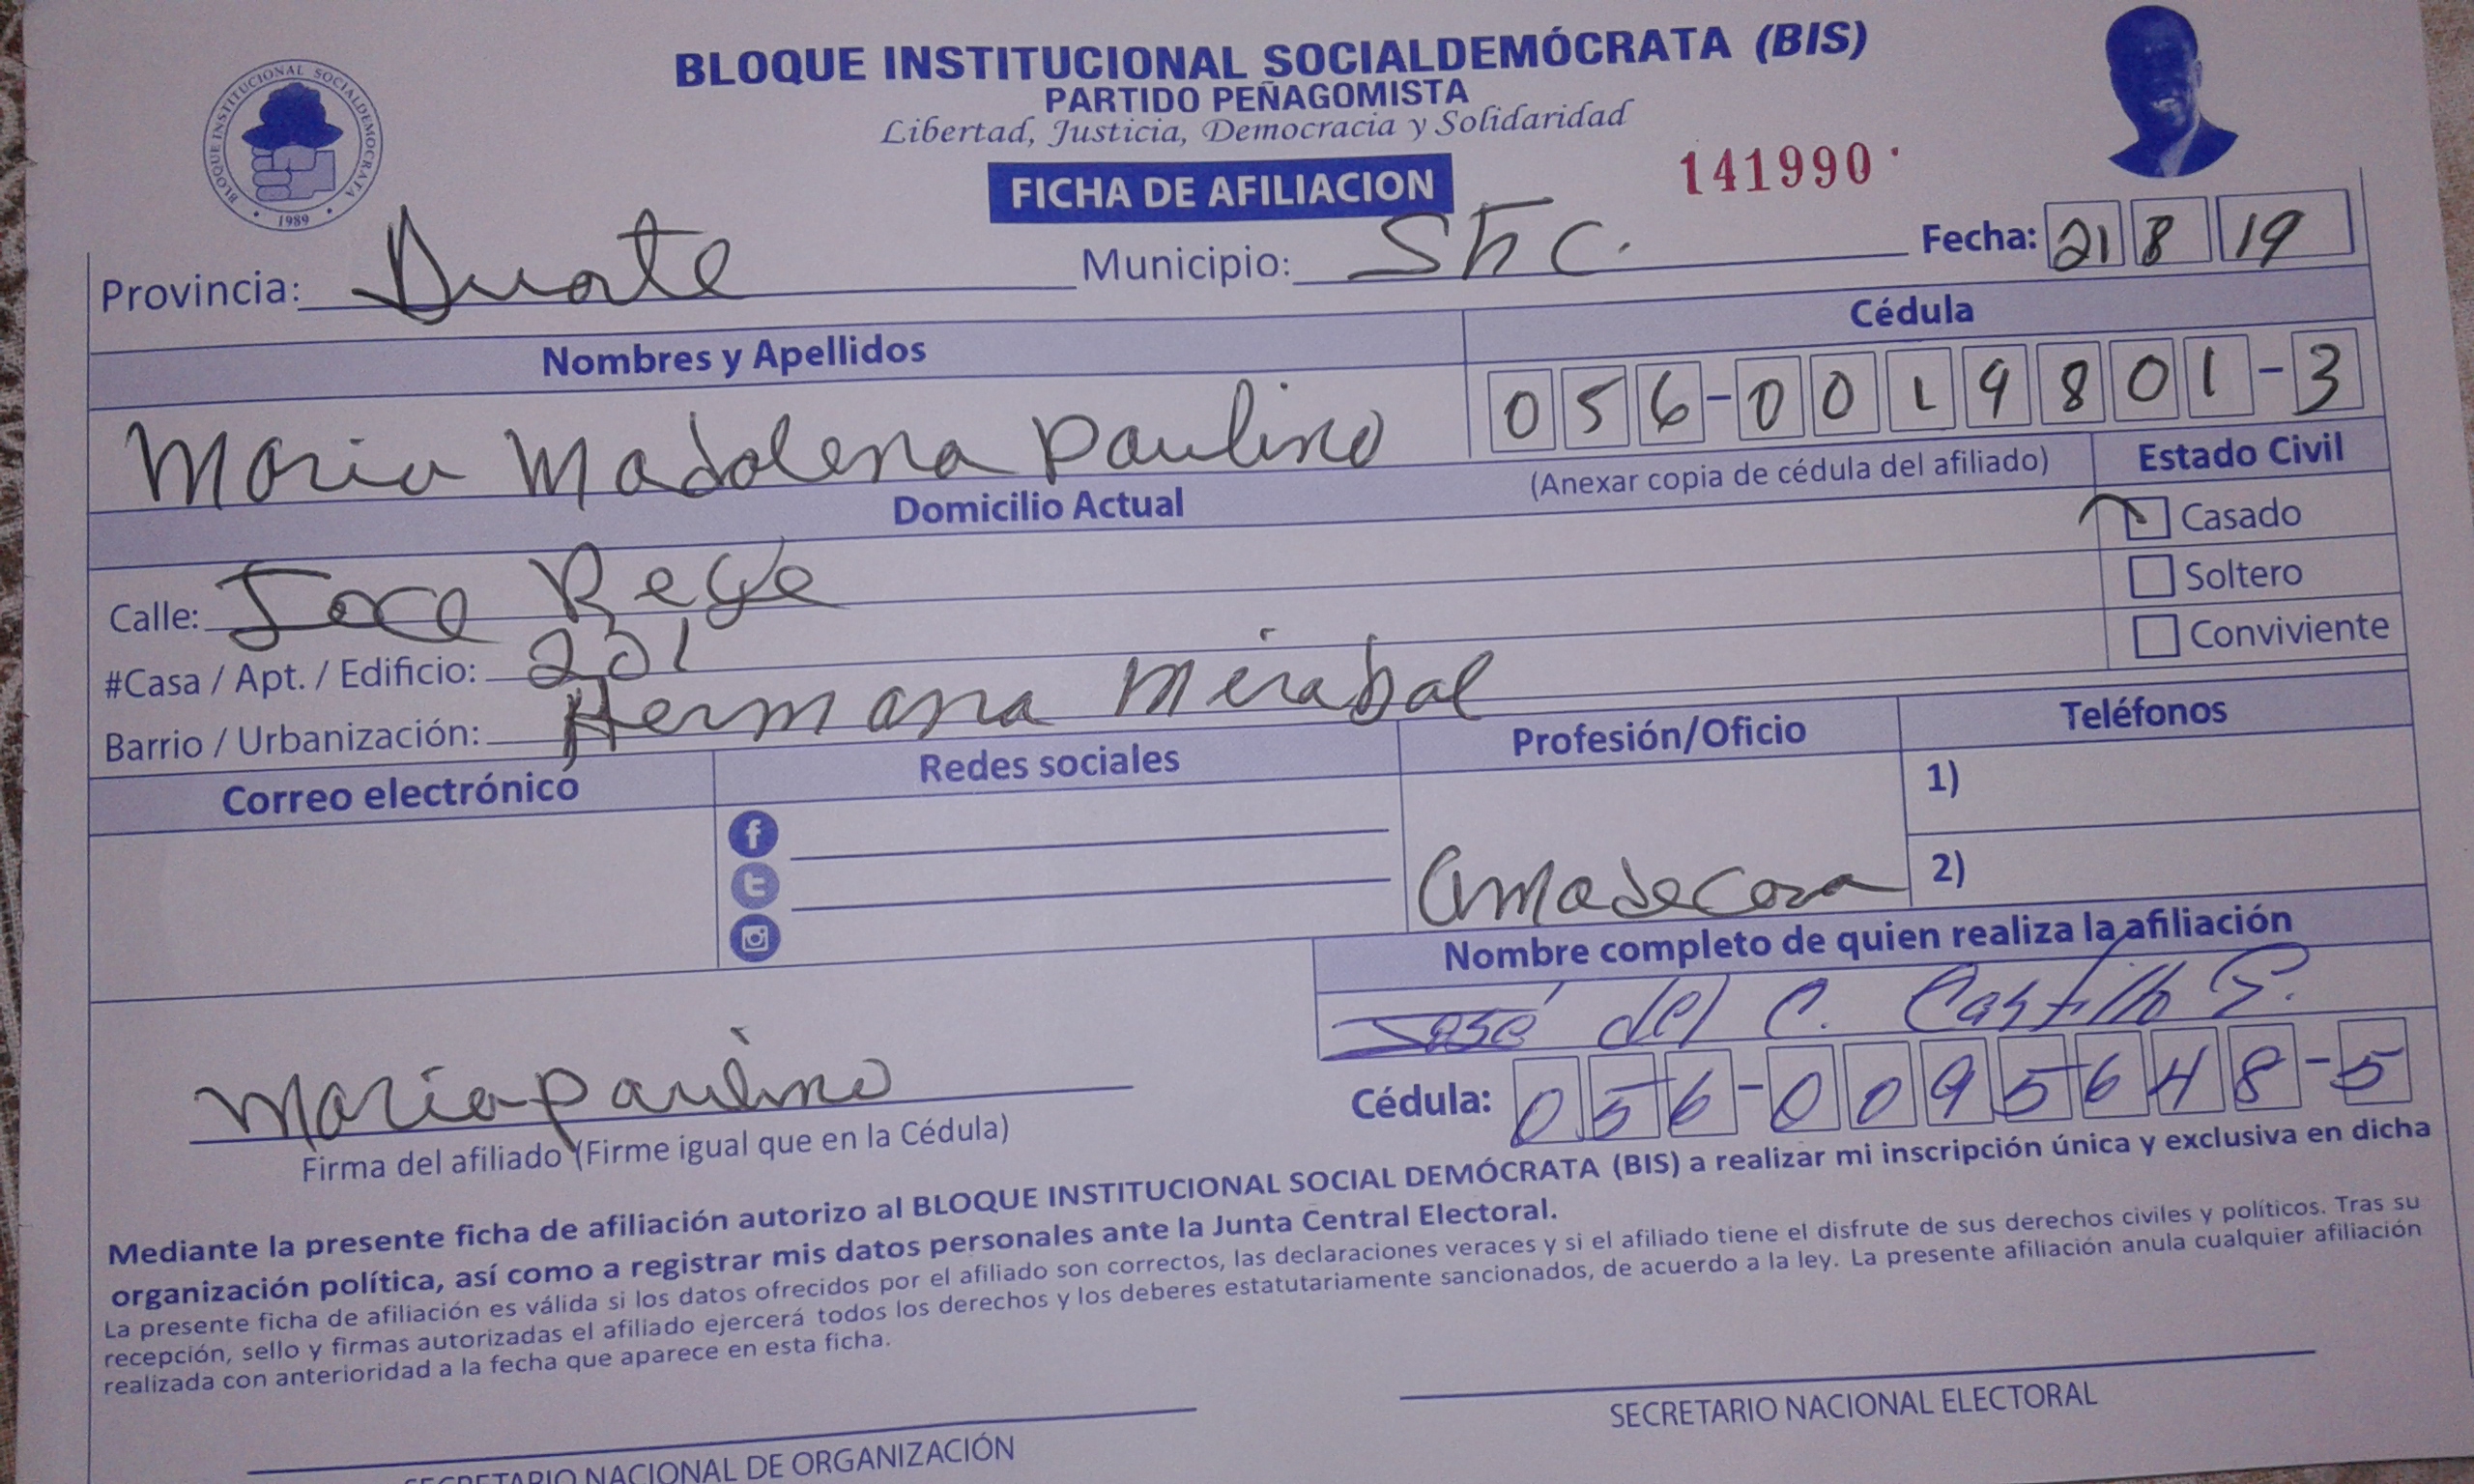 BLOQUE INSTITUCIONAL SOCIALDEMÓCRATA (BIS)
PARTIDO PEÑAGOMISTA
Libertad, Justicia, Democracia y Solidaridad
BLOQUE INSTITUCIONAL SOCIALDEMOCRATA
• 1989 •
FICHA DE AFILIACION
141990
Provincia: Duarte Municipio: Fecha: 21 8 19
Nombres y Apellidos Cédula
Maria Madalena Paulino 056-0019801-3
(Anexar copia de cédula del afiliado) Estado Civil
Domicilio Actual
Casado
Soltero
Conviviente
Calle:
#Casa / Apt. / Edificio: 201
Barrio / Urbanización: Hermana Mirabal
Correo electrónico Redes sociales Profesión/Oficio Teléfonos
1)
2)
Ama de Casa
Nombre completo de quien realiza la afiliación
José del C. Castillo
Cédula: 056-0095648-5
Maria Paulino
Firma del afiliado (Firme igual que en la Cédula)
Mediante la presente ficha de afiliación autorizo al BLOQUE INSTITUCIONAL SOCIAL DEMÓCRATA (BIS) a realizar mi inscripción única y exclusiva en dicha
organización política, así como a registrar mis datos personales ante la Junta Central Electoral.
La presente ficha de afiliación es válida si los datos ofrecidos por el afiliado son correctos, las declaraciones veraces y si el afiliado tiene el disfrute de sus derechos civiles y políticos. Tras su
recepción, sello y firmas autorizadas el afiliado ejercerá todos los derechos y los deberes estatutariamente sancionados, de acuerdo a la ley. La presente afiliación anula cualquier afiliación
realizada con anterioridad a la fecha que aparece en esta ficha.
SECRETARIO NACIONAL DE ORGANIZACIÓN
SECRETARIO NACIONAL ELECTORAL